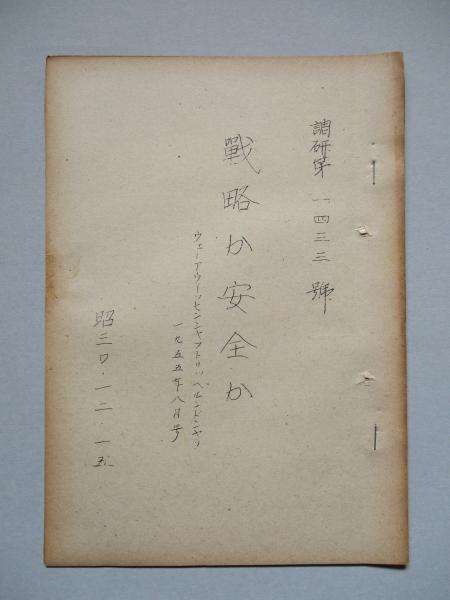 調研第一四三三號
戰略か安全か
ウェーアウィッセンシャフトリッヘルンドシャウ
一九五五年八月号
昭三〇・一二・一五